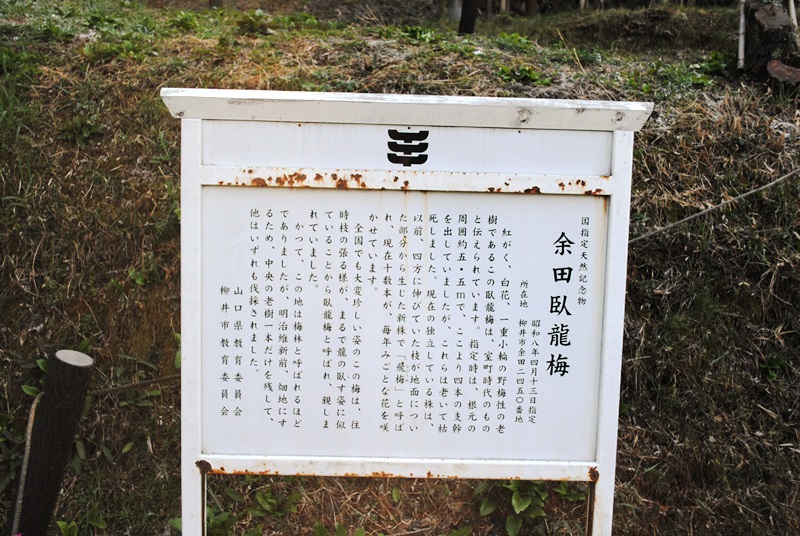 国指定天然記念物
余田臥龍梅
昭和八年四月十三日指定
所在地　柳井市余田二四五〇番地
紅がく、白花、一重小輪の野梅性の老
樹であるこの臥龍梅は、室町時代のもの
と伝えられています。指定時は、根元の
周囲約五・五mで、ここより四本の支幹
を出していましたが、これらは老いて枯
死しました。現在の独立している株は、
以前、四方に伸びていた枝が地面につい
た部分から生じた新株で「飛梅」と呼ば
れ、現在十数本が、毎年みごとな花を咲
かせています。
全国でも大変珍しい姿のこの梅は、往
時枝の張る様が、まるで龍の臥す姿に似
ていることから臥龍梅と呼ばれ、親しま
れていました。
かつて、この地は梅林と呼ばれるほど
でありましたが、明治維新前、畑地にす
るため、中央の老樹一本だけを残して、
他はいずれも伐採されました。
山口県教育委員会
柳井市教育委員会